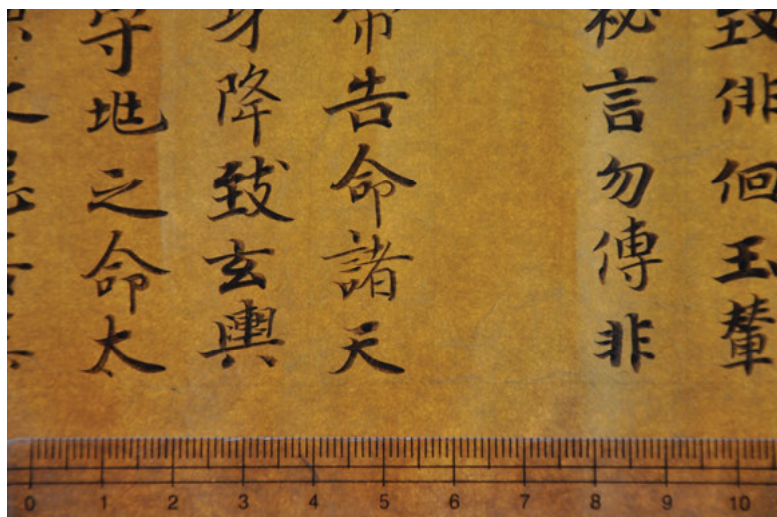 致俳佪玉輦
祕言勿傳非
帝告命諸天
身降致玄輿
守地之命太
0 1 2 3 4 5 6 7 8 9 10